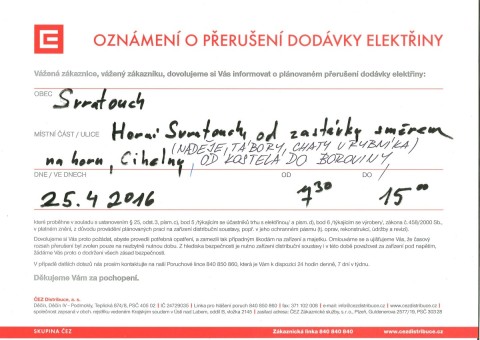 OZNÁMENÍ O PŘERUŠENÍ DODÁVKY ELEKTŘINY
Vážená zákaznice, vážený zákazníku, dovolujeme si Vás informovat o plánovaném přerušení dodávky elektřiny:
OBEC
Svratouch
MÍSTNÍ ČÁST / ULICE
Horní Svratouch, od zastávky směrem
(NADĚJE, TÁBORY, CHATY U RYBNÍKA)
na horu, Cihelny, OD KOSTELA DO BOROVINY,
DNE / VE DNECH OD DO
25.4 2016 7 30 15 00
které proběhne v souladu s ustanovením § 25, odst. 3, písm. c), bod 5 /týkajícím se účastníků trhu s elektřinou/ a písm. d), bod 6 /týkajícím se výrobny/, zákona č. 458/2000 Sb.,
v platném znění, z důvodu provádění plánovaných prací na zařízení distribuční soustavy, popř. v jeho ochranném pásmu (tj. oprav, rekonstrukcí, údržby a revizí).
Dovolujeme si Vás proto požádat, abyste potřebná opatření, a zamezili tak případným škodám na zařízení a majetku. Omlouváme se a ujišťujeme Vás, že časový
rozsah přerušení byl zvolen pouze na nezbytně nutnou dobu. Z hlediska bezpečnosti je nutno zařízení distribuční soustavy i v této době považovat za zařízení pod napětím,
žádáme Vás proto o dodržení všech zásad bezpečnosti.
V případě dalších dotazů nás prosím kontaktujte na naší Poruchové lince 840 850 860, která je Vám k dispozici 24 hodin denně, 7 dní v týdnu.
Děkujeme Vám za pochopení.
ČEZ Distribuce, a. s.
Děčín, Děčín IV - Podmokly, Teplická 874/8, PSČ 405 02 | IČ 24729035 | Linka pro hlášení poruch 840 850 860 | fax: 371 102 008 | e-mail: info@cezdistribuce.cz | www.cezdistribuce.cz |
společnost zapsaná v obch. rejstříku vedeném Krajským soudem v Ústí nad Labem, oddíl B, vložka 2145 | zasílací adresa: ČEZ Zákaznické služby, s. r. o., Plzeň, Guldenerova 2577/19, PSČ 303 28
SKUPINA ČEZ Zákaznická linka 840 840 840 www.cezdistribuce.cz